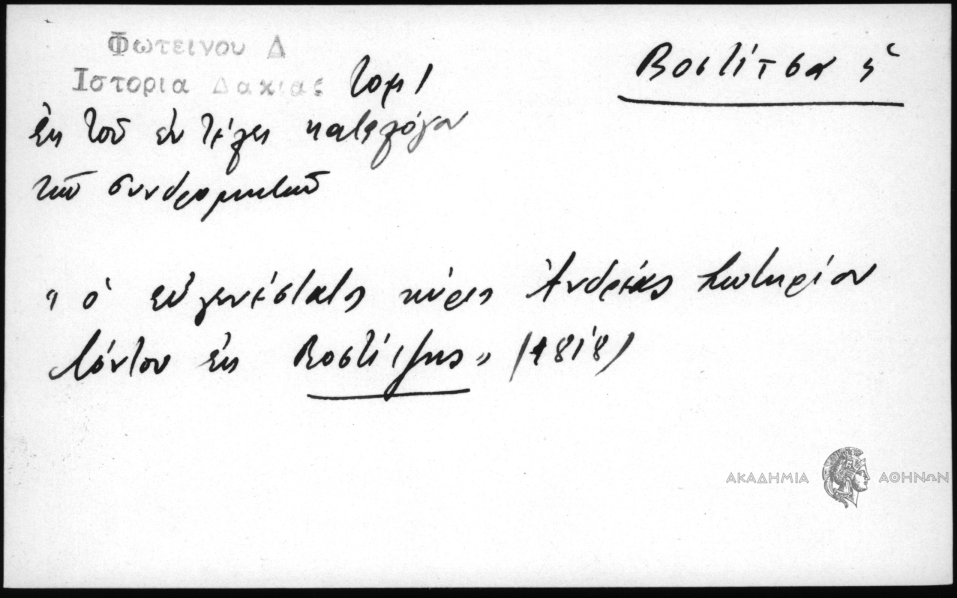 Φωτεινου Δ
Ιστορια Δακιας τομ 1
Βοστίτσα ἡ
ἐκ τοῦ ἐν τέλει καταλόγου
τῶν συνδρομητῶν
"ὁ εὐγενέστατος κύριος Ἀνδρέας Σωτηρίου
Λόντου ἐκ Βοστίτζης" (1818)
ΑΚΑΔΗΜΙΑ ΑΘΗΝΩΝ